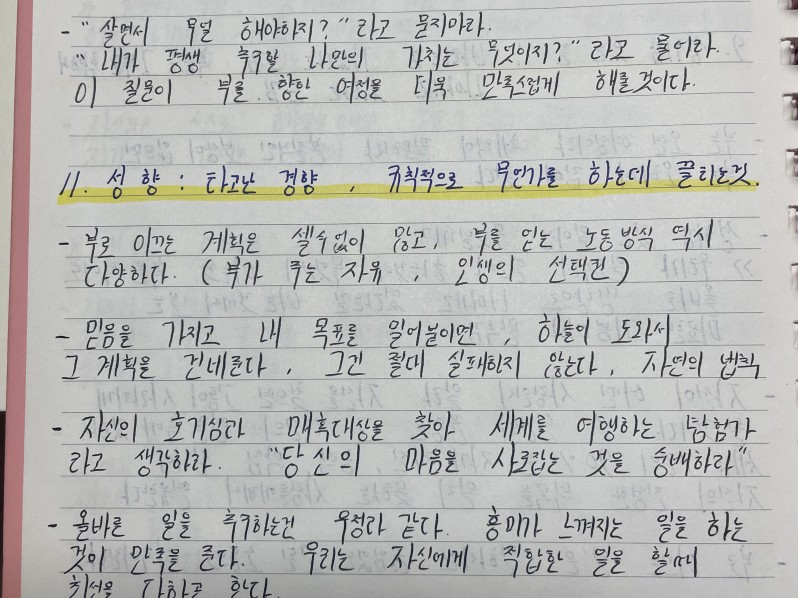 - "살면서 무얼 해야하지?" 라고 묻지마라.
"내가 평생 추구할 나만의 가치는 무엇이지?" 라고 물어라.
이 질문이 부를 향한 여정을 더욱 만족스럽게 해줄것이다.
11. 성향 : 타고난 경향, 규칙적으로 무언가를 하는데 끌리는것.
- 부로 이끄는 계획은 셀수없이 많고, 부를 얻는 노동방식 역시
다양하다. (부가 주는 자유, 인생의 선택권)
- 믿음을 가지고 내 목표를 밀어붙이면, 하늘이 도와서
그 계획을 건네준다, 그건 절대 실패하지 않는다, 자연의 법칙
- 자신의 호기심과 매혹대상을 찾아 세계를 여행하는 탐험가
라고 생각하라. "당신의 마음을 사로잡는 것을 숭배하라"
- 올바른 일을 추구하는건 우정과 같다. 흥미가 느껴지는 일을 하는
것이 만족을 준다. 우리는 자신에게 적합한 일을 할때
최선을 다하고 한다.